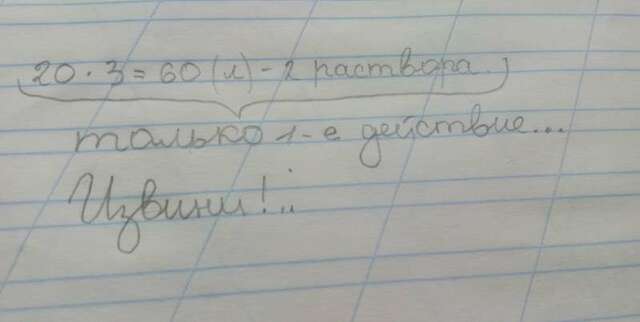 20 · 3 = 60 (л) - 2 раствора
только 1-е действие...
Извини!..